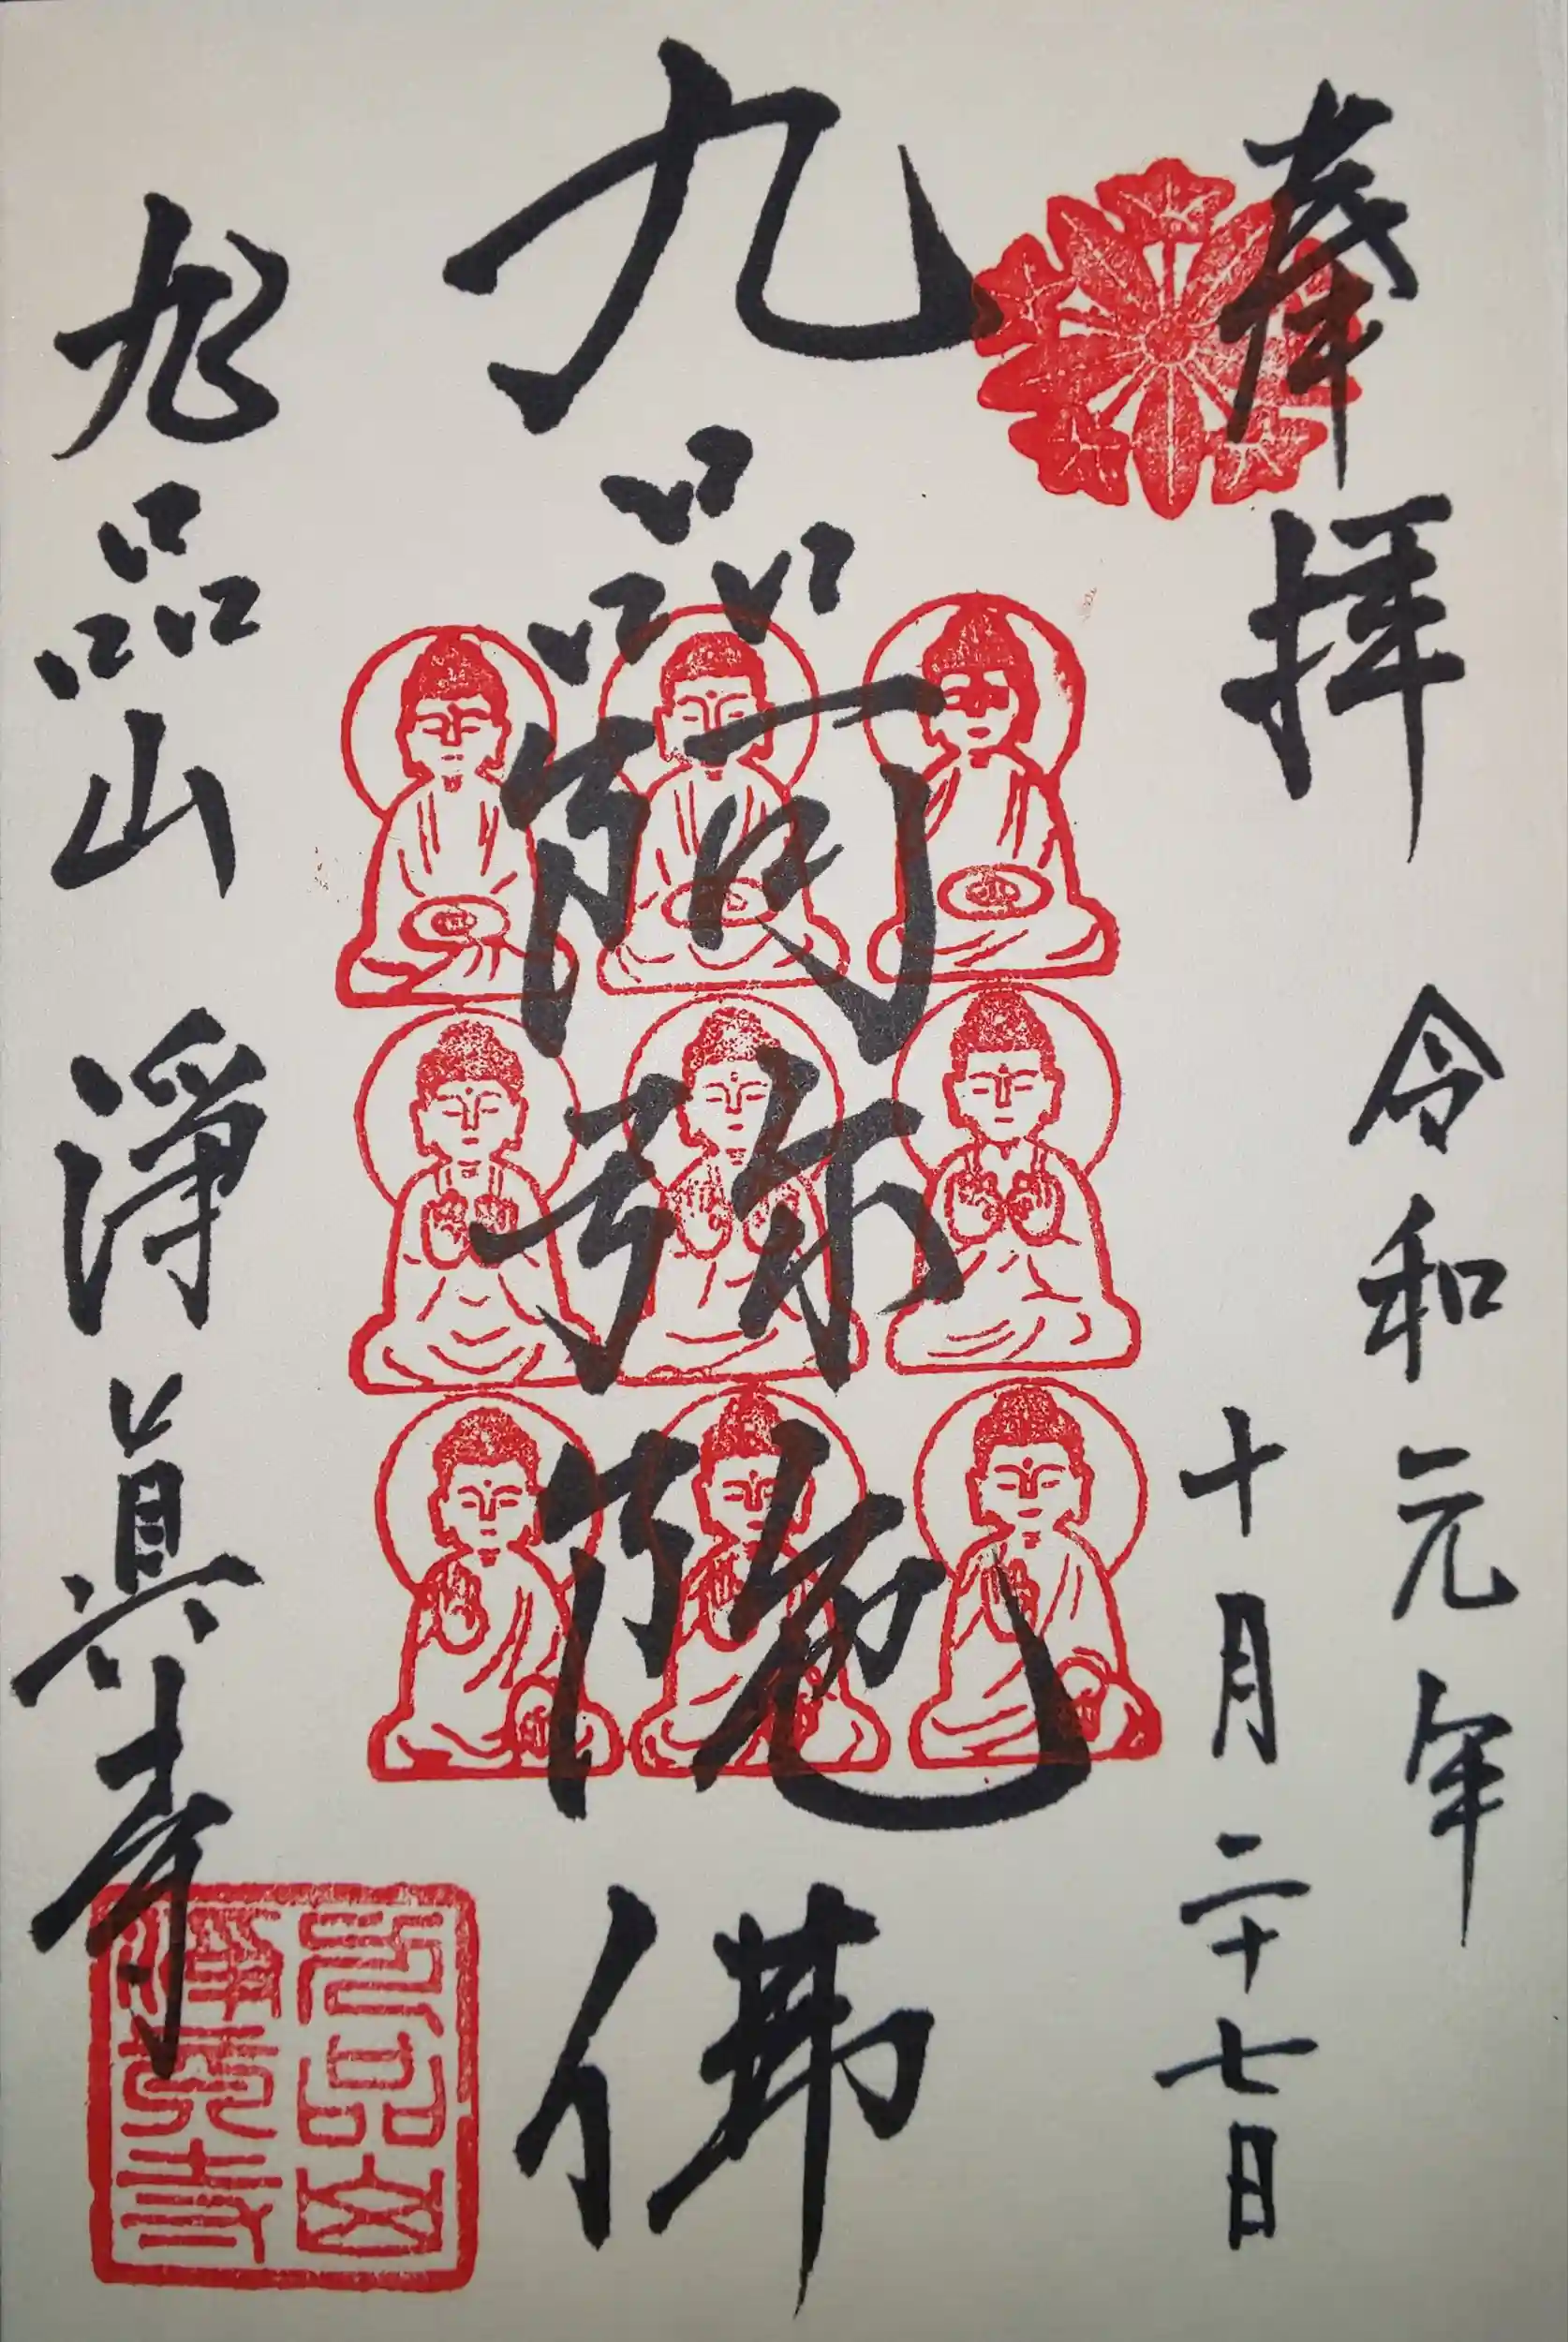 奉拝
令和元年
十月二十七日
九品阿弥陀佛
九品山 淨眞寺
九品山
淨真寺